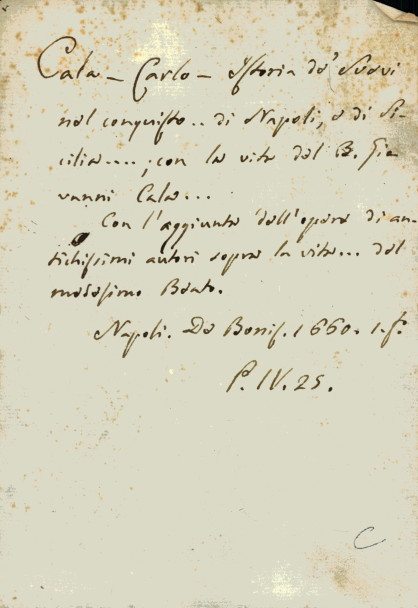 Cala - Carlo - Istoria de' Svevi
nel conquisto.. di Napoli, e di Si-
cilia....; con la vita del B. Gio
vanni Cala...
Con l'aggiunta dell'opera di an-
tichissimi autori sopra la vita... del
medesimo Beato.
Napoli. De Bonis. 1660. 1. f.º
P. IV. 25.
C